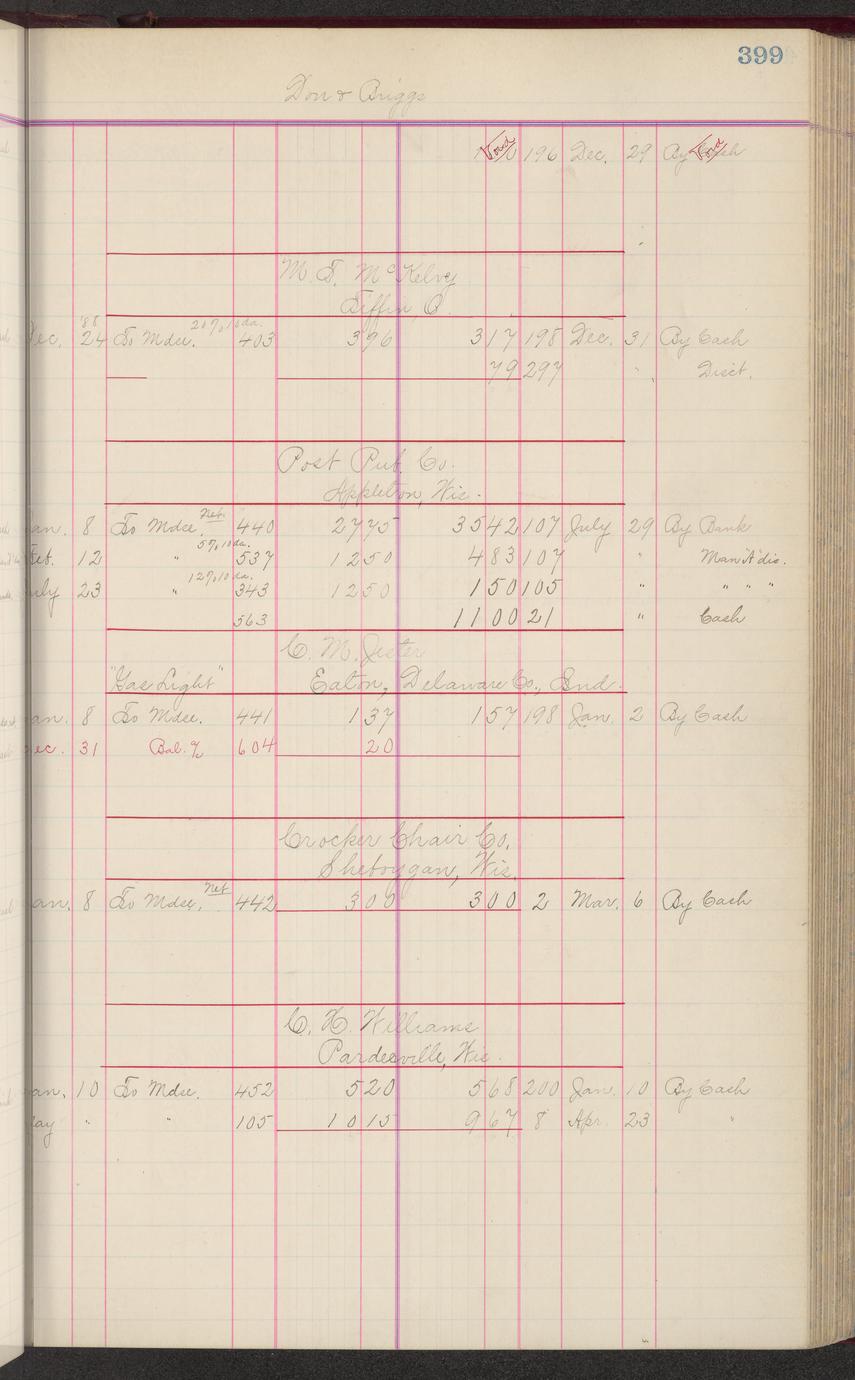 399
Don & Briggs
Void 196 Dec. 29 By Cash Void
M. S. McKelvy
Tiffin, O.
'88 20% 10 da.
Dec. 24 To Mdse. 403 3 96 3 17 198 Dec. 31 By Cash
79 297 " Disct.
Post Pub. Co.
Appleton, Wis.
an. 8 To Mdse. Net 440 27 75 35 42 107 July 29 By Bank
5% 10 da.
12 " 537 12 50 4 83 107 " Man'
12% 10 da.
uly 23 " 343 12 50 1 50 105 " " " "
563 11 00 21 " Cash
C. M. Jester
"Gas Light" Eaton, Delaware Co., Ind.
an. 8 To Mdse. 441 1 37 1 57 198 Jan. 2 By Cash
ec. 31 Bal. % 604 20
Crocker Chair Co.
Sheboygan, Wis.
an. 8 To Mdse. Net 442 3 00 3 00 2 Mar. 6 By Cash
C. H. Williams
Pardeeville, Wis.
an. 10 To Mdse. 452 5 20 5 68 200 Jan. 10 By Cash
ay " " 105 10 15 9 67 8 Apr. 23 "